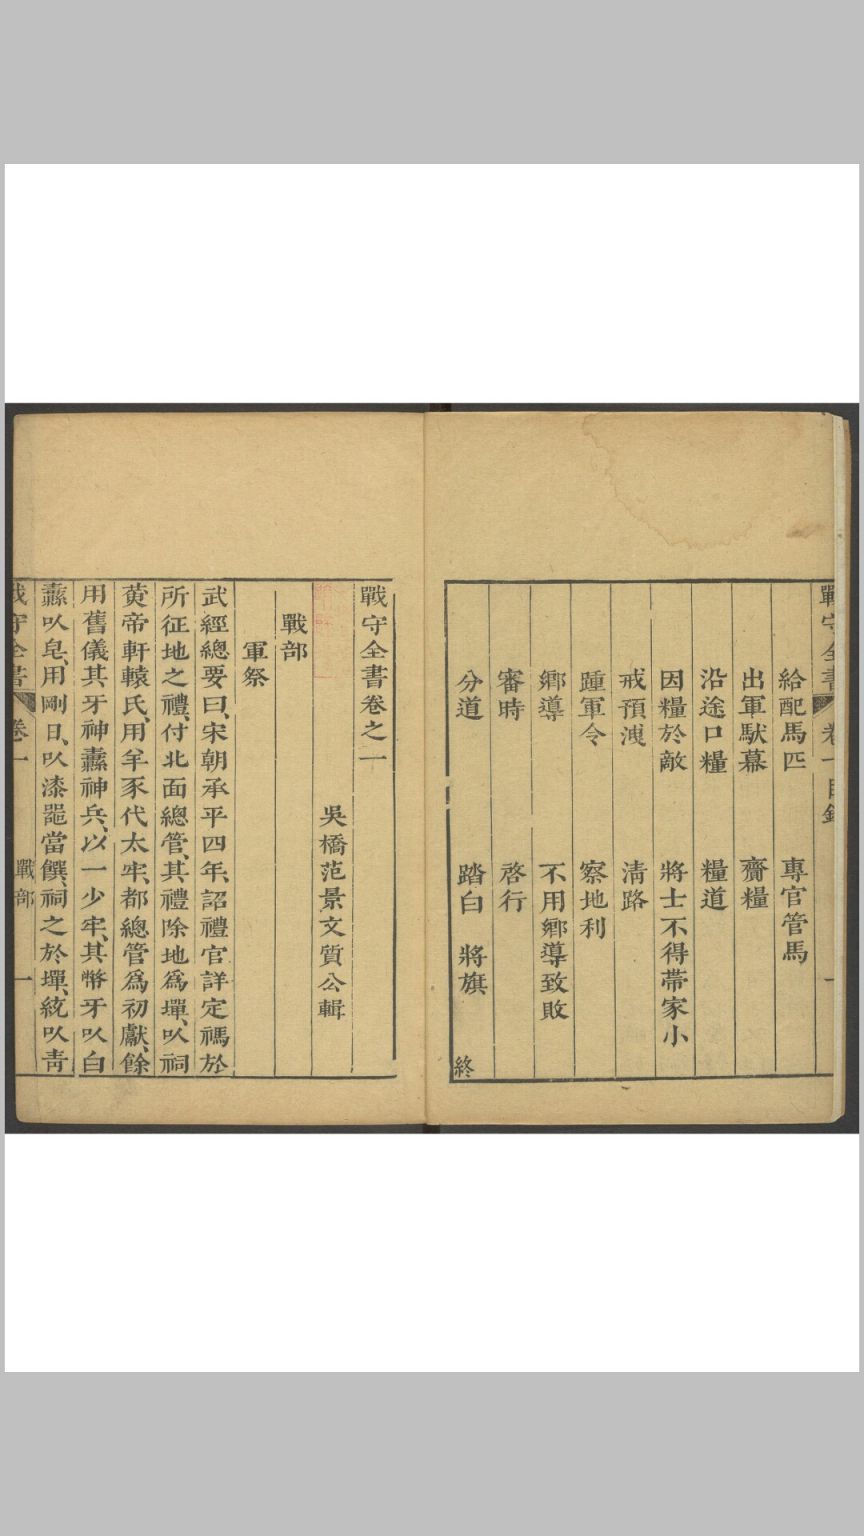 戰守全書 卷一目錄 一
給配馬匹 專官管馬
出軍馱幕 齎糧
沿途口糧 糧道
因糧於敵 將士不得帶家小
戒預洩 清路
踵軍令 察地利
鄉導 不用鄉導致敗
審時 啓行
分道 踏白 將旗 終
戰守全書卷之一
吳橋范景文質公輯
戰部
軍祭
武經總要曰、宋朝承平四年、詔禮官詳定禡於
所征地之禮、付北面總管、其禮除地爲墠、以祠
黃帝軒轅氏、用羊豕代太牢、都總管爲初獻、餘
用舊儀其牙神纛神兵、以一少牢、其幣牙以白
纛以皂、用剛日、以漆器當饌、祠之於墠、統以青
戰守全書 卷一 戰部 一